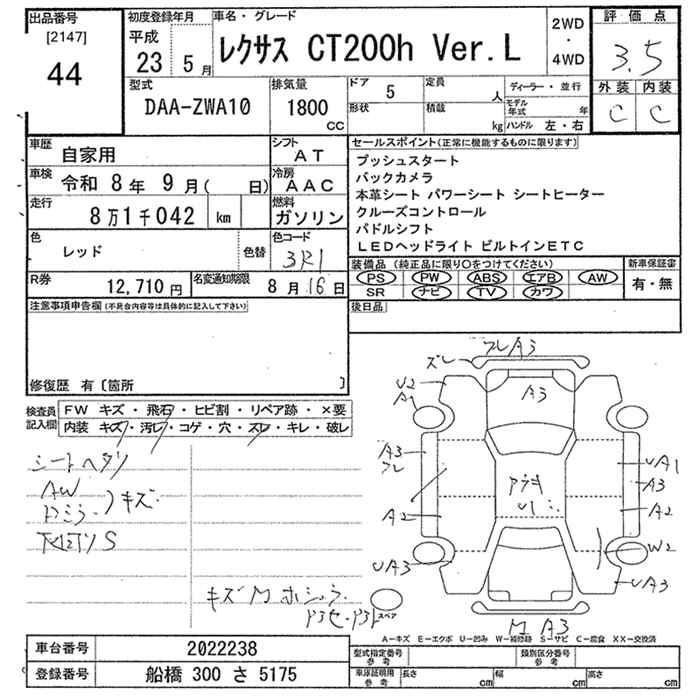 出品番号
[2147]
44
初度登録年月
平成
23 5月
車名・グレード
レクサス CT200h Ver.L
2WD
・
4WD
評価点
3.5
外装 内装
C C
型式
DAA-ZWA10
排気量
1800
CC
ドア 5
形状
定員
人
積載
kg
ディーラー・並行
モデル年式 年
ハンドル 左・右
車歴
自家用
シフト
AT
車検
令和 8年 9月( 日)
冷房
AAC
走行
8万1千042 km
燃料
ガソリン
色
レッド
色替
色コード
3R1
R券
12,710円
名変通知期限
8月16日
セールスポイント(正常に機能するものに限ります)
プッシュスタート
バックカメラ
本革シート パワーシート シートヒーター
クルーズコントロール
パドルシフト
LEDヘッドライト ビルトインETC
装備品 (純正品に限り○をつけてください)
PS PW ABS エアB AW
SR ナビ TV カワ
新車保証書
有・無
後日品
注意事項申告欄(不具合内容等は具体的に記入して下さい)
修復歴 有〔箇所 〕
検査員記入欄
FW キズ・飛石・ヒビ割・リペア跡・×要
内装 キズ・汚レ・コゲ・穴・ズレ・キレ・破レ
シートヘタリ
AW
ドミラ 〉キズ
キズM
ズレ
フレ A3
U2
A1
A3
A3
フレ
A2
UA3
UA1
A3
A2
W2
UA3
U1
M A3
スペア
A-キズ E-エクボ U-凹み W-補修跡 S-サビ C-腐食 XX-交換済
車台番号 2022238
登録番号 船橋 300 さ 5175
型式指定番号
参考
類別区分番号
参考
車庫証明用
参考
長さ cm
幅 cm
高さ cm